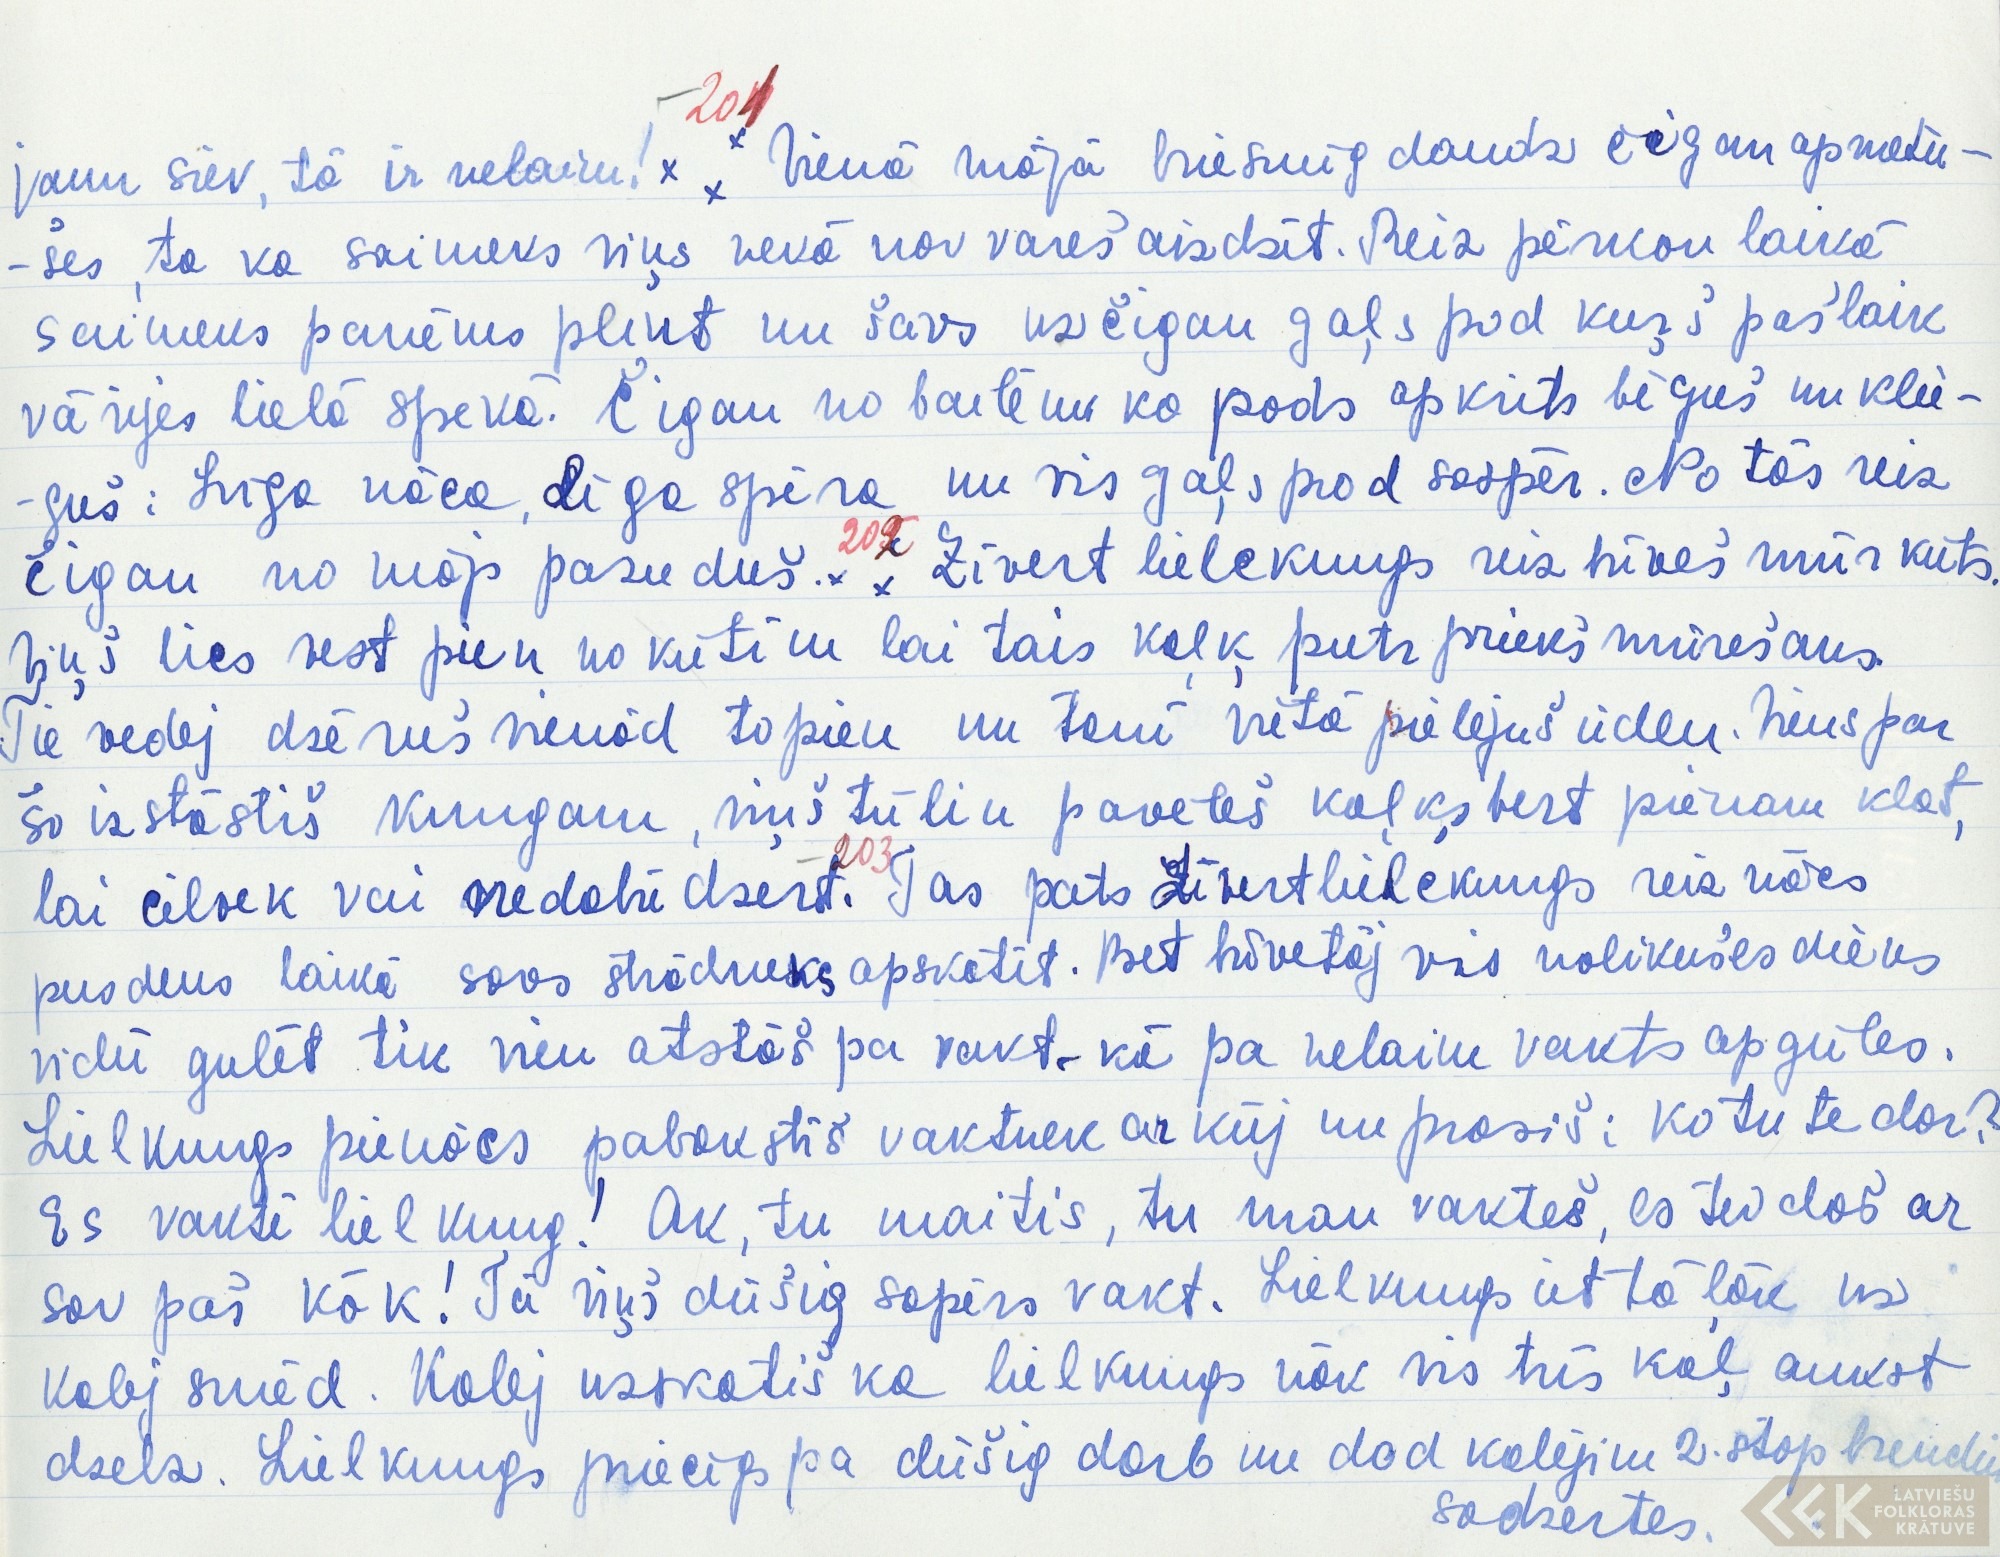 201
jaun siev, tā ir nelaim! x x x Vienā mājā briesmīg daudz čigan apmetu-
-šes, ta ka saimeks viņs nekā nov vareš aizdzīt. Reiz pērkon laikā
saimeks panēms plint un šavs uz čigan gaļs pod kuŗš pašlaik
vārijes lielā spekā. Čigan no bailēm ka pods apkrits bēguš un klie-
-guš: Liga nāca, Liga spēra un vis gaļs pod saspēr. No tās reiz
čigan no māj pazuduš. x x 202 Zīvert lielckungs reiz būveš mūr kūts.
Viņš lics vest pien no kūtīm lai tais kaļķ putr priekš mūrešans.
Tie vedej dzēruš vienād to pien un tanī vietā pielējuš ūden. Viens par
šo izstāstīš kungam, viņš tūlin paveleš kaļķs bert pienam klat,
lai cilvek vai nedabū dzert. - 203 Tas pats Zīvert lielckungs reiz nācs
pusdens laikā savs strādneks apskatīt. Bet būvetāj vis nolikušes diens
vidū gulēt tik vien atstāš pa vakt - kā pa nelaim vakts apgūles.
Lielkungs pienācs pabakstīš vaktnek ar kūj un prasiš: Ko tu te dar?
Es vaktē lielkung! Ak, tu maitis, tu man vakteš, es tev doš ar
sav paš kōk! Tā viņš dūšig sapērs vakt. Lielkungs iet tā ļāk uz
kalej smēd. Kalej uzskatiš ka lielkungs nāk vis trīs kaļ aukst
dzelz. Lielkungs priecīgs pa dūšig darb un dod kalējim 2. stop brendiņ
sadzertes.
LATVIEŠU
FOLKLORAS
KRĀTUVE